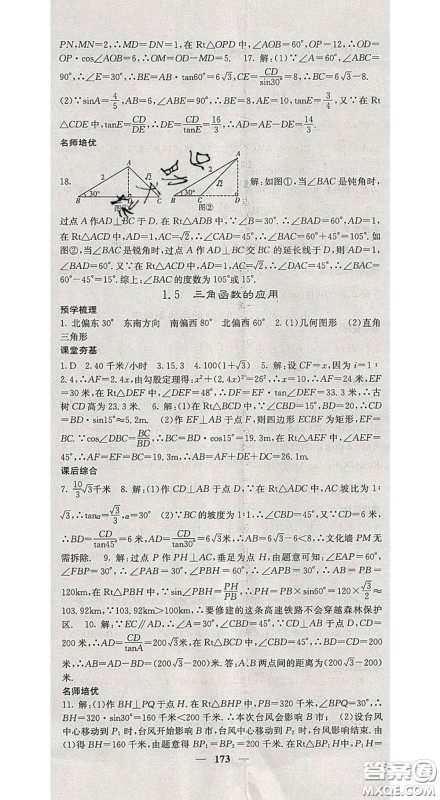 PN,MN=2,∴MD=DN=1,在Rt△OPD中,∠AOB=60°,OP=12,∴OD=
OP·cos∠AOB=6,∴OM=OD-MD=5. 17. 解:(1)∵∠A=60°,∠ABE=
90°,∴∠E=30°,∴BE=AB·tan60°=6√3,CE=CD/sin30°=8,∴BC=6√3-8.
(2)∵sinA=4/5,AB=6,∠ABE=90°,∴BE=8,AE=10,tanE=3/4,又∵在Rt
△CDE中,∴tanE=CD/DE,∴DE=CD/tanE=16/3,∴AD=AE-DE=14/3.
名师培优
18.
解:如图①,当∠BAC是钝角时,
图②
过点A作AD⊥BC于D.在Rt△ADB中,∵∠B=30°.∴∠BAD=60°,AD=1.
在Rt△ACD中,AD=1,AC=√2,∴∠CAD=45°,∴∠BAC=60°+45°=105°.如
图②,当∠BAC是锐角时,过点A作AD⊥BC交BC的延长线于D,则AD=1,
∠BAD=60°.又∵在Rt△ACD中,AD=1,AC=√2,∴∠CAD=45°,∴∠BAC=
60°-45°=15°.综上,∠BAC的度数为105°或15°.
1.5 三角函数的应用
预学梳理
1. 北偏东30° 东南方向 南偏西80° 北偏西60° 2. (1)几何图形 (2)直角
三角形
课堂夯基
1. D 2. 40千米/小时 3. 15.3 4. 100(1+√3) 5. 解:设CF=x,因为i=1:
2.4,∴AF=2.4x,由勾股定理得:x²+(2.4x)²=26²,∴x=10,∴AF=24米,EF
=30米,在Rt△DEF中,∴tan48°=DE/EF,∴DE=EF·tan48°=33.3米.∴古
树CD高为23.3米 6. 解:(1)在Rt△BCD中,∵∠CBD=15°,BD=20,∴CD=
BD·sin15°≈5.2m. (2)作EF⊥AB于点F,则四边形ECBF为矩形.∵∠CBD=
15°,BC∵cos∠DBC=BC/BD,∴BC=BD·cos15°=19.3m,在Rt△AEF中,∠AEF=
45°,∴AF=EF=BC=19.3m,∴AB=AF+DE+CD=26.1m.
课后综合
7. 10/3√3千米 8. 解:(1)作CD⊥AB于点D,∵在Rt△ADC中,AC坡比为1:
√3,∴tanα=√3/3,α=30° (2)∵BC的坡度为1:1,∴∠CBD=45°,又∵CD=6米,
∴BD=CD/tan45°=6米,∴AD=6√3米,∴AB=6√3-6<8,∴文化墙PM无
需拆除. 9. 解:过点P作PH⊥AC,垂足为点H,由题意可知:∠EAP=60°,
∠FBP=30°,∴∠PAB=30°,∠PBH=60°,∴∠APB=30°=∠PAB,∴PB=AB=
120km,在Rt△PBH中,∵sin∠PBH=PH/PB,∴PH=PB×sin60°=120×√3/2≈
103.92km,∵103.92km>100km,∴要修建的这条高速铁路不会穿越森林保护
区. 10. 解:∵EC//AD,∴∠A=30°,∠CBD=45°,∵CD⊥AB于点D,CD=200
米,∴AD=CD/tanA=200√3米,在Rt△BCD中,∠CBD=45°,∴BD=CD=200
米,∴AB=AD-BD=(200√3-200)米.答:A、B两点间的距离为(200√3-200)米.
名师培优
11. 解:(1)作BH⊥PQ于点H.在Rt△BHP中,PB=320千米,∠BPQ=30°,
∴BH=320·sin30°=160千米<200千米,∴本次台风会影响B市; (2)设台风
中心移动到P₁时,台风开始影响B市,台风中心移动到P₂时,台风影响结束.由
(1)得BH=160千米,由题意得BP₁=BP₂=200千米,在Rt△BHP₁中,P₁H=
173
答案圈
MXQE.COM